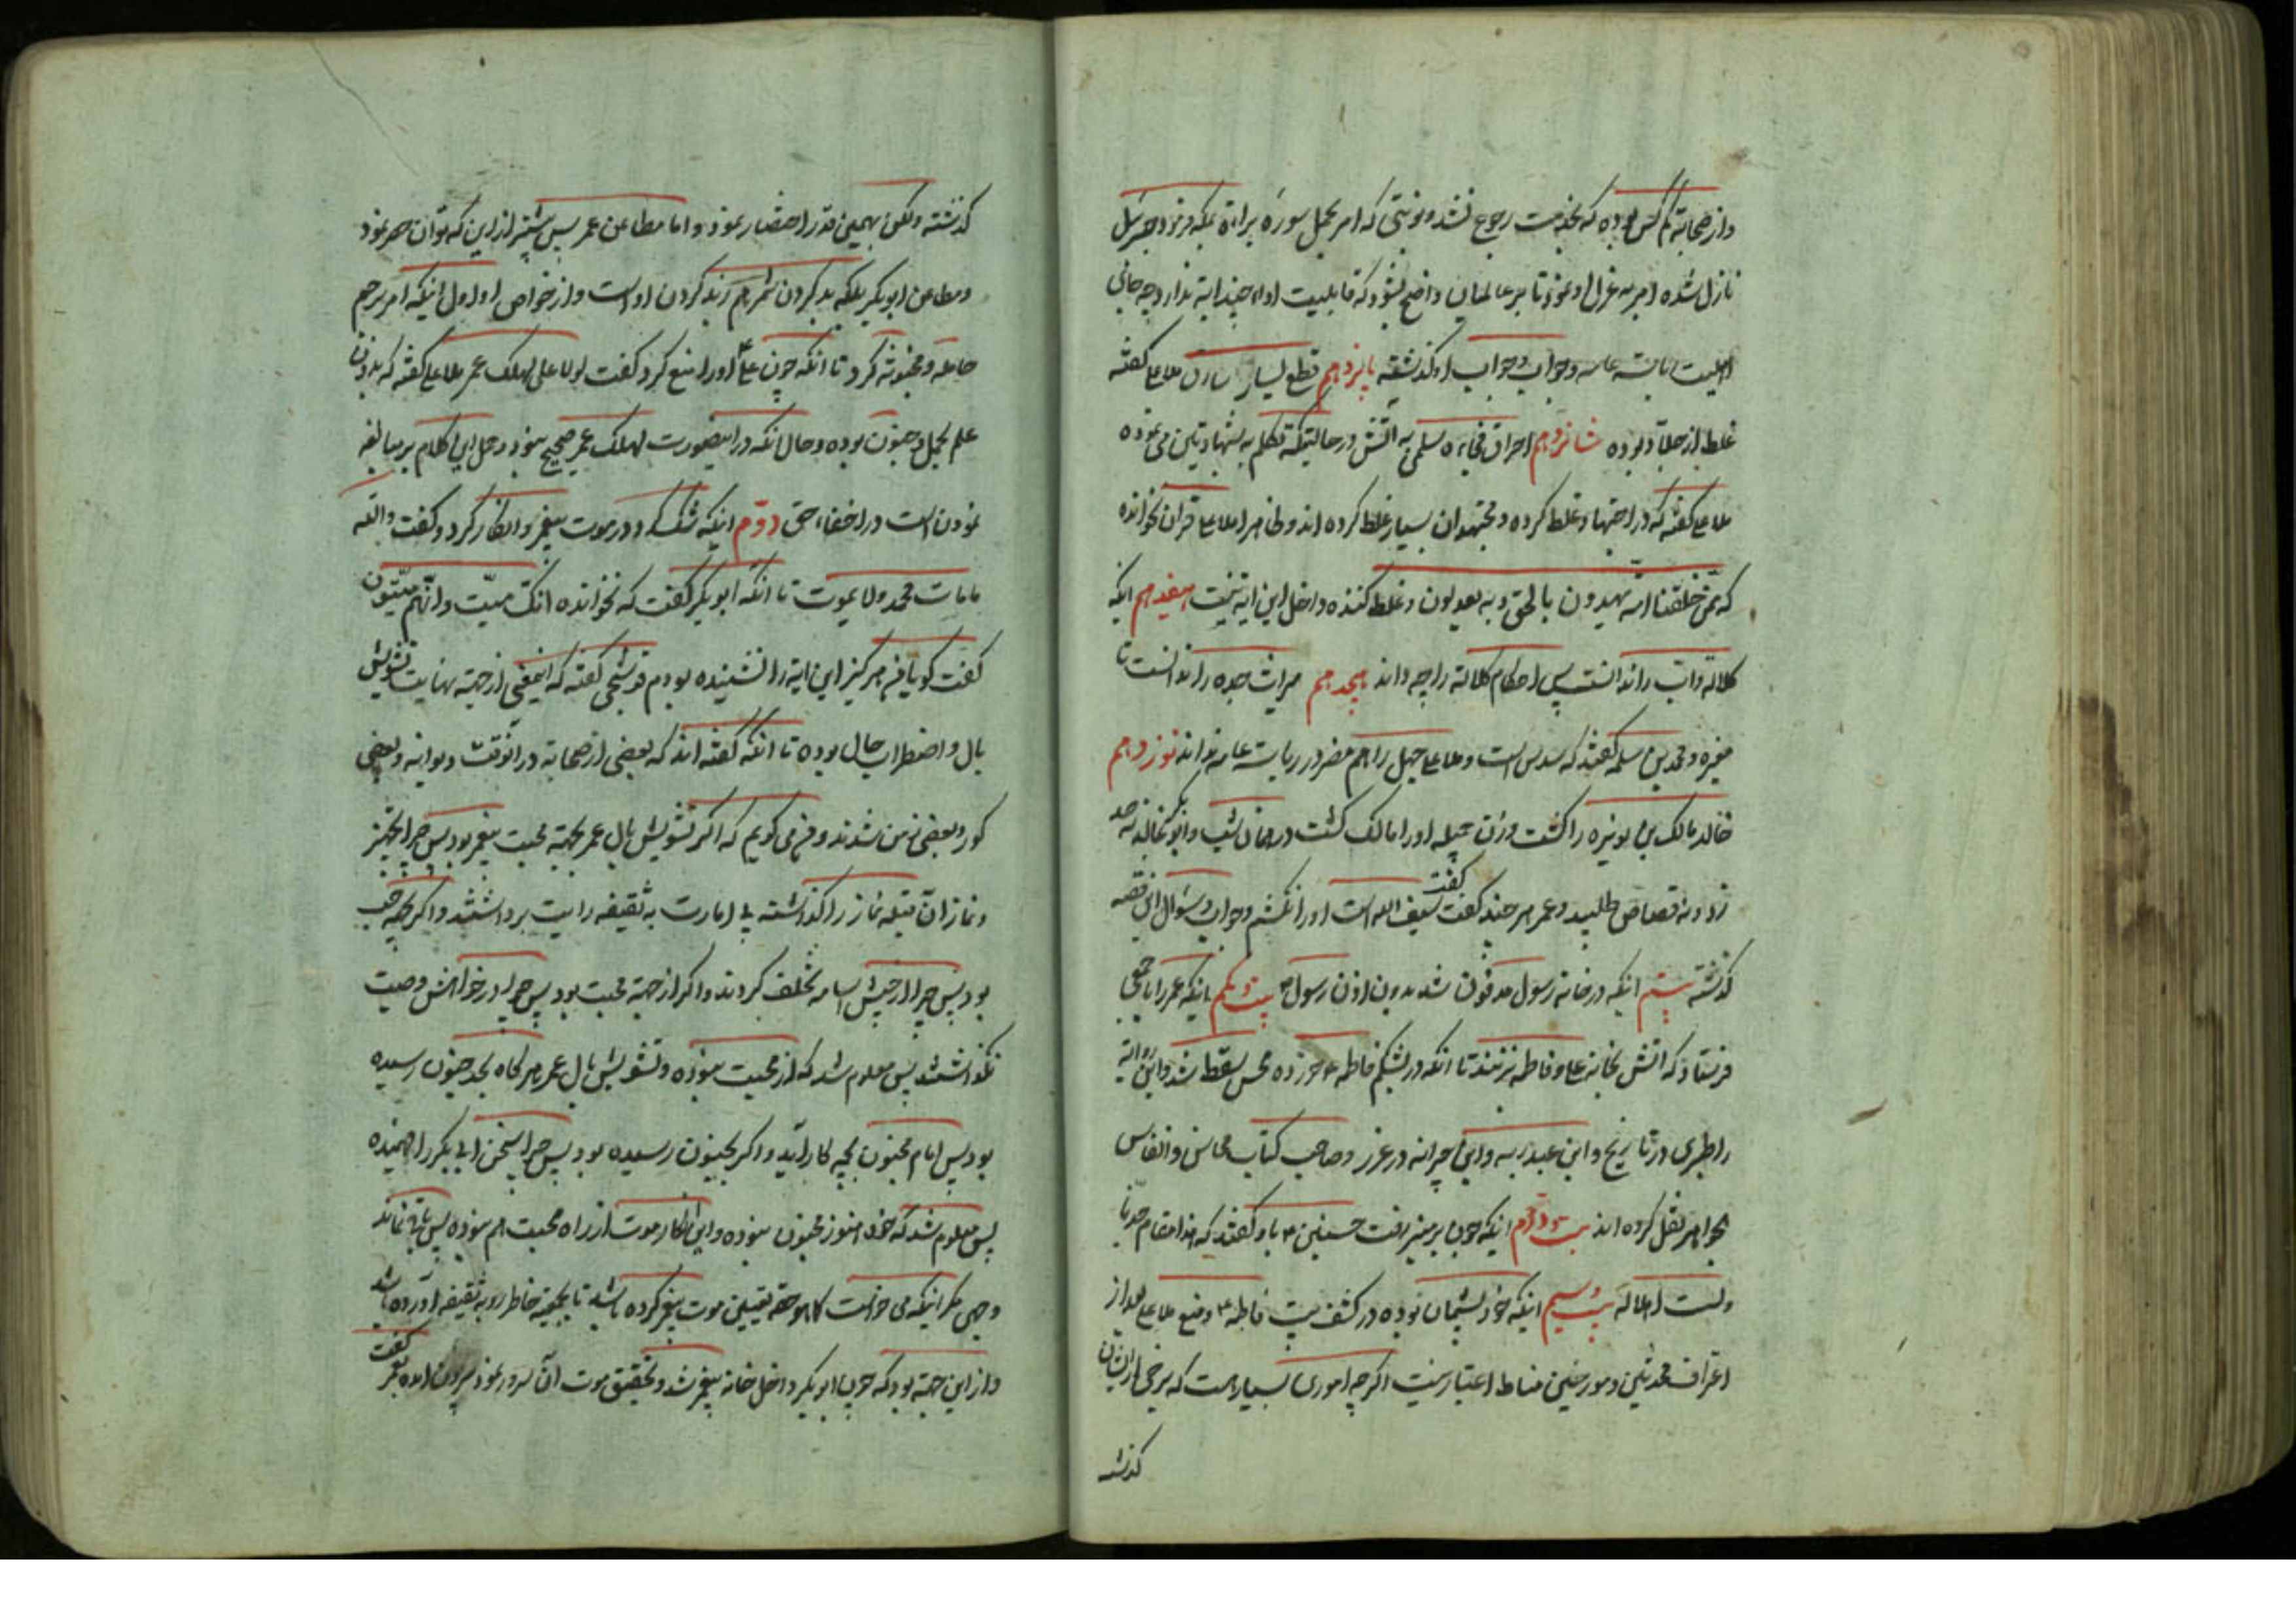 و از صحابه کم کس بوده که بخدمت رجوع نشد و نوبتی که امر بحمل سوره براءة بمکه فرمود جبرئیل
نازل شده امر به عزل او نمود تا بر عالمیان واضح بشود که قابلیت اداء چند ایة ندارد چه جای
اهلیت ریاست عامه و جواب و جواب او گذشته پانزدهم قطع یسار سارق ملاعلی گفته
غلط از جلاد بوده شانزدهم احراق فجاءه سلمی به آتش در حالتیکه تکلم به شهادتین می نموده
ملاعلی گفته که در اجتهاد غلط کرده و مجتهدان بسیار غلط کرده اند و ظاهرا ملاعلی قران نخوانده
که ممن خلقنا امة یهدون بالحق و به یعدلون و غلط کننده داخل این ایة نیست هفدهم انکه
کلاله و اب را ندانست پس احکام کلاله را چه داند هجدهم میراث جده را ندانست تا
مغیره و محمد بن مسلمه گفتند که سدس است و ملاعلی جهل را هم مضر در ریاست عامه نداند نوزدهم
خالد مالک بن نویره را کشت و زن جمیله او را مالک گشت در همان شب و ابوبکر خالد نه حد
زد و نه قصاص طلبید و عمر هر چند گفت گفت سیف الله است او را نکشم و جواب و سئوال این قصه
گذشته بیستم انکه در خانه رسول مدفون شد بدون اذن رسول ص بیست و یکم انکه عمر را با جمعی
فرستاد که اتش بخانه علی و فاطمه بزنند تا انکه در بشکم فاطمه ع خورده محسن سقط شد و این روایة
را طبری در تاریخ و ابن عبدربه و ابن جرانه در غرر و صاحب کتاب محاسن و انفاس
الجواهر نقل کرده اند بیست و دوم اینکه چون بر منبر رفت حسنین ع باو گفتند که هذا مقام جدنا
و لست اهلا له بیست و سیم اینکه خود پشیمان بوده در کشف بیت فاطمه ع و منع ملاعلی بعد از
اعتراف محدثین و مورخین مناط اعتبار نیست اگر چه اموری بسیار است که برخی از ان
گذشته
گذشته و لکن بهمین قدر اختصار نمود و اما مطاعن عمر پس بیشتر از این که توان حصر نمود
و مطاعن ابوبکر بلکه بد کردن شمر هم از بد کردن او است و از خواص او اول اینکه امر برجم
حامله و مجنونه کرد تا انکه چون علی ع او را منع کرد گفت لولا علی لهلک عمر ملاعلی گفته که بدون
علم بحمل و جنون بوده و حال انکه در اینصورت لهلک عمر صحیح نبود و حمل این کلام بر مبالغه
نمودن است در اخفاء حق دوم اینکه شک کرد در موت پیغمبر و انکار کرد و گفت والله
ما مات محمد و لا یموت تا انکه ابوبکر گفت که نخوانده انک میت و انهم میتون
گفت گویا فی هرگز این ایة را نشنیده بودم قوشجی گفته که اینمعنی از جهة نهایت تشویش
بال و اضطراب حال بوده تا انکه گفته اند که بعضی از صحابه در انوقت دیوانه و بعضی
کور و بعضی زمن شدند و من می گویم که اگر تشویش بال عمر بجهة محبت پیغمبر بود پس چرا تجهیز
و نماز ان قبله نماز را گذاشته پی امارت به ثقیفه رایت برداشتند و اگر بجهة حب
بود پس چرا از جیش اسامه تخلف کردند و اگر از جهة محبت بود پس چرا در خواهش وصیت
نگذاشتند پس معلوم شد که از محبت نبوده و تشویش بال عمر هرگاه بحد جنون رسیده
بود پس امام مجنون بچه کار آید و اگر بجنون نرسیده بود پس چرا سخن ابی بکر را فهمیده
پس معلوم شد که خود هنوز مجنون نبوده و این انکار موت از راه محبت هم نبوده پس باقی نماند
وجهی مگر اینکه می خواست کما هو حقه تفتیش موت پیغمبر کرده باشد تا بجمعیة خاطر رو به ثقیفه آورده باشد
و از این جهة بود که چون ابوبکر داخل خانه پیغمبر شد و تحقیق موت ان سرور نمود بیرون امده بعمر گفت